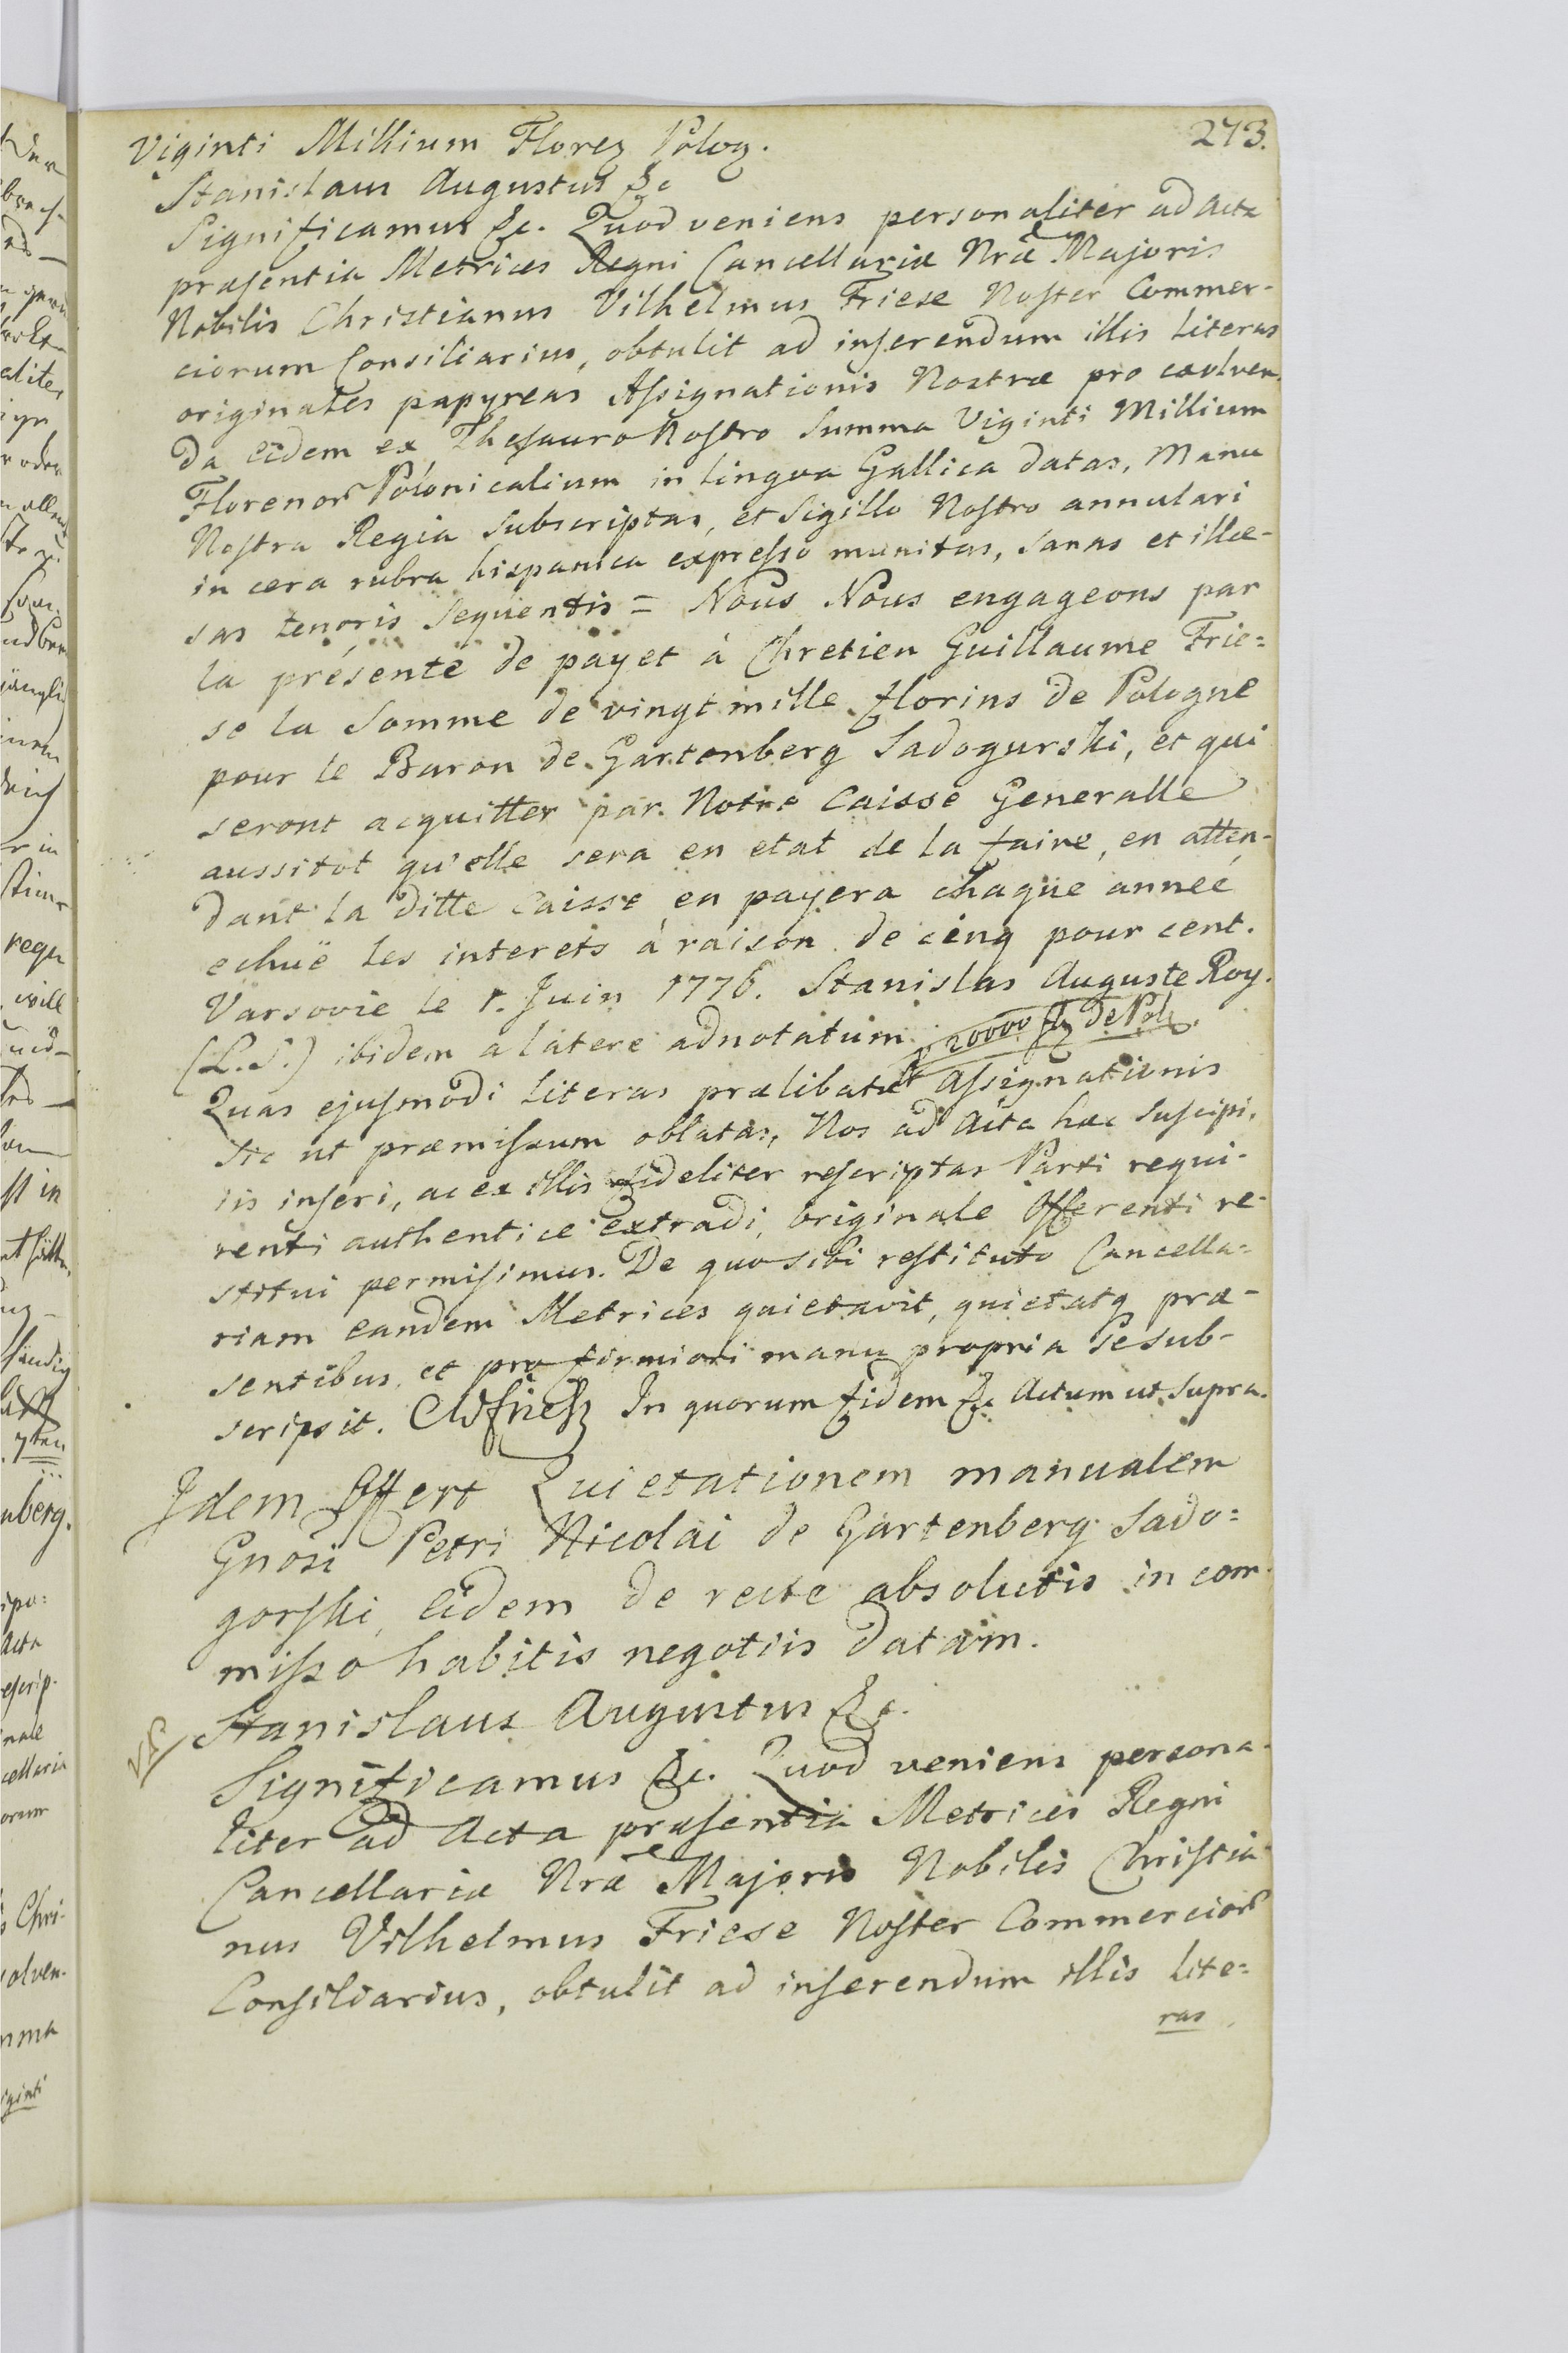 273.
Viginti Millium Floreꝝ Poloꝝ.
Stanislaus Augustus &c
Significamus &c. Quod veniens personaliter ad Acta
præsentia Metrices Regni Cancellariæ Nræ Majoris
Nobilis Christianus Vilhelmus Friese Noster Commer-
ciorum Consiliarius, obtulit ad inserendum illis Literas
originales papyreas Assignationis Nostræ pro exolven-
da eidem ex Thesauro Nostro Summa Viginti Millium
Florenor Polonicalium in lingva Gallica datas, Manu
Nostra Regia Subscriptas, et Sigillo Nostro annulari
in cera rubra hispanica expresso munitas, sanas et illæ-
sas tenoris sequentis = Nous Nous engageons par
la présente de payet à Chretien Guillaume Frie=
se la Somme de vingt mille florins de Pologne
pour le Baron de Gartenberg Sadogurski, et qui
seront acquitter par Notre Caisse Generalle
aussitot qu'elle sera en etat de la faire, en atten-
dant la ditte Caisse en payera chaque année
echuë les interets à raison de cinq pour cent.
Varsovie le 1. Juin 1776. Stanislas Auguste Roy.
(L.S.) ibidem a latere adnotatum 20000 fl de Pol.
Quas ejusmodi Literas prælibatæ Assignationis
sic ut præmissum oblatas, Nos ad Acta hæc suscipi,
iis inseri, ac ex illis fideliter rescriptas Parti requi-
renti authentice extradi, originale Offerenti re-
stitui permisimus. De quo sibi restituto Cancella=
riam eandem Metrices quietavit, quietatq præ-
sentibus, et pro firmiori manu propria se sub-
scripsit. CWFriesz In quorum fidem &c Actum ut supra.
Idem Offert Quietationem manualem
Gnosi Petri Nicolai de Gartenberg Sado=
gorski, eidem de recte absolutis in com-
misso habitis negotiis datam.
Stanislaus Augustus &c.
Significamus &c. Quod veniens persona-
liter ad Acta præsentia Metrices Regni
Cancellariæ Nræ Majoris Nobilis Christia-
nus Vilhelmus Friese Noster Commercior
Consiliarius, obtulit ad inserendum illis Lite=
ras